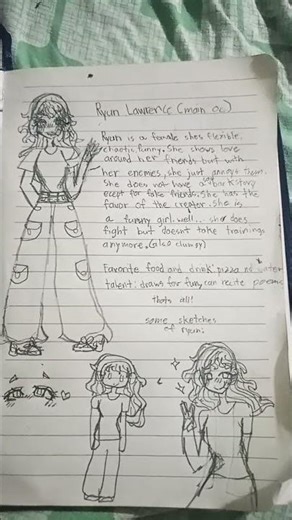 Ryun Lawrence (main oc)
Ryun is a female she's flexible,
chaotic, funny. She shows love
around her friends but with
her enemies, she just annoys them.
She does not have a backstory
except for fake friends, she has the
favor of the creator. she is
a funny girl. well.. she does
fight but doesnt take trainings
anymore. (also clumsy)
Favorite food and drink: pizza water
talent: draws for fun, can recite
thats all!
some sketches
of ryun: